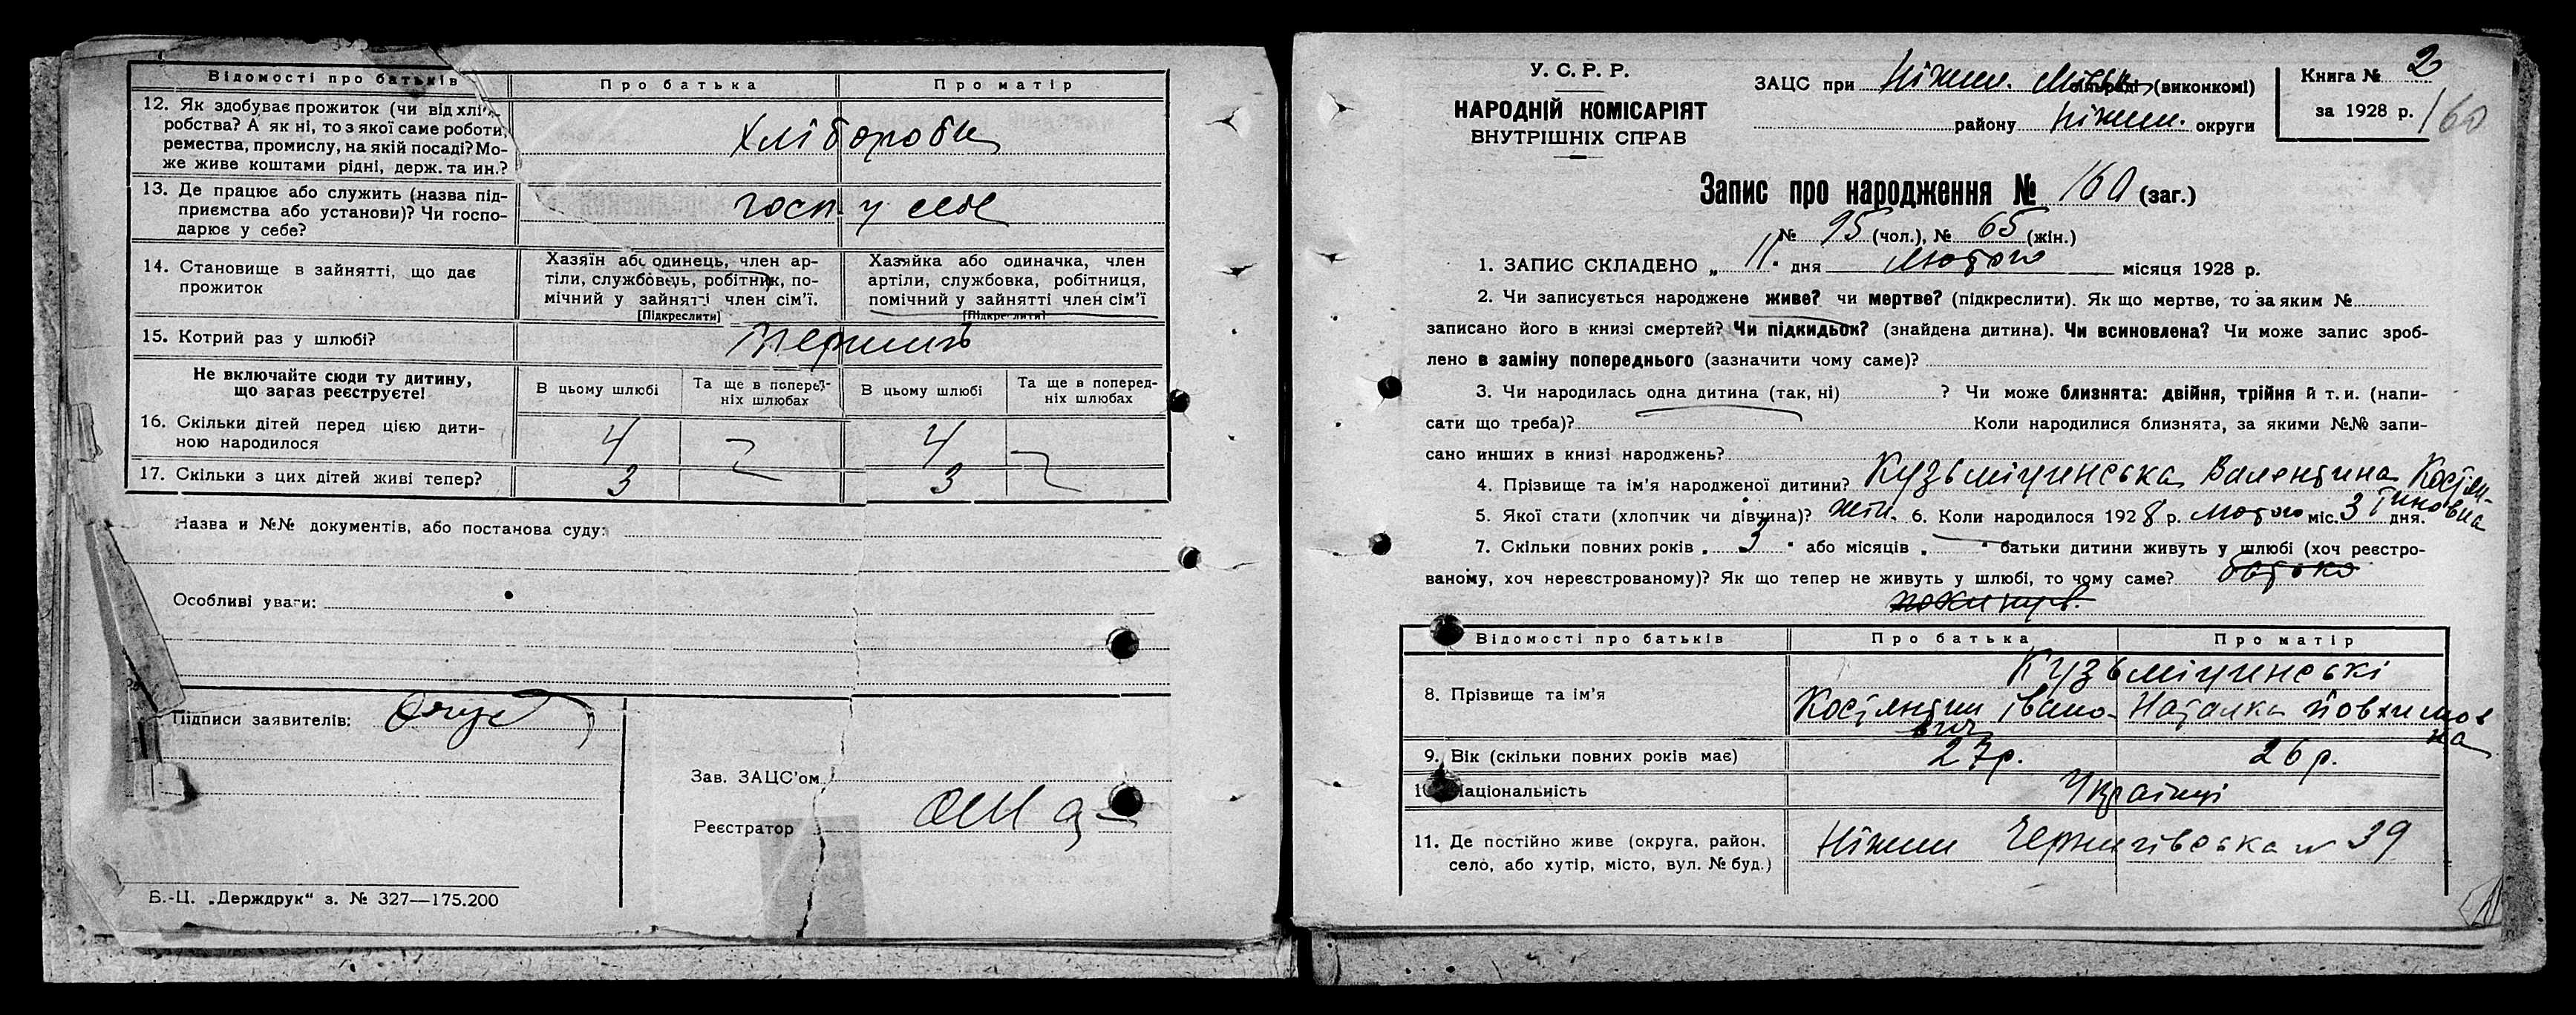 Відомості про батьків
Про батька
Про матір
12. Як здобуває прожиток (чи від хлі-
робства? А як ні, то з якої саме роботи,
ремества, промислу, на якій посаді? Мо-
же живе коштами рідні, держ. та ин.?
Хлібороби
13. Де працює або служить (назва під-
приємства або установи)? Чи госпо-
дарює у себе?
госп у себе
14. Становище в зайнятті, що дає
прожиток
Хазяїн або одинець, член ар-
тіли, службовець, робітник, по-
мічний у зайнятті член сім'ї.
[Підкреслити]
Хазяйка або одиначка, член
артіли, службовка, робітниця,
помічний у зайнятті член сім'ї
[Підкреслити]
15. Котрий раз у шлюбі?
Не включайте сюди ту дитину,
що зараз реєструєте!
В цьому шлюбі
Та ще в поперед-
ніх шлюбах
В цьому шлюбі
Та ще в поперед-
ніх шлюбах
16. Скільки дітей перед цією дити-
ною народилося
4 4
17. Скільки з цих дітей живі тепер?
3 3
Назва и №№ документів, або постанова суду:
Особливі уваги:
Підписи заявителів:
Зав. ЗАЦС'ом
Реєстратор
Б.-Ц. „Держдрук" з. № 327—175.200
У. С. Р. Р.
НАРОДНІЙ КОМІСАРІЯТ
ВНУТРІШНІХ СПРАВ
ЗАЦС при Ніжин. (виконкомі)
району Ніжин. округи
Книга № 2
за 1928 р.
160
Запис про народження № 160 (заг.)
№ 95 (чол.), № 65 (жін.)
1. ЗАПИС СКЛАДЕНО „ 11 " дня Лютого місяця 1928 р.
2. Чи записується народжене живе? чи мертве? (підкреслити). Як що мертве, то за яким №
записано його в книзі смертей? Чи підкидьок? (знайдена дитина). Чи всиновлена? Чи може запис зроб-
лено в заміну попереднього (зазначити чому саме)?
3. Чи народилась одна дитина (так, ні) ? Чи може близнята: двійня, трійня й т. и. (напи-
сати що треба)? Коли народилися близнята, за якими №№ запи-
сано инших в книзі народжень?
4. Прізвище та ім'я народженої дитини? Кузьмічинська Валентина Костян-
тиновна
5. Якої стати (хлопчик чи дівчина)? жін. 6. Коли народилося 1928 р. лютого міс. 3 дня.
7. Скільки повних років „ 3 " або місяців „ " батьки дитини живуть у шлюбі (хоч реєстро-
ваному, хоч нереєстрованому)? Як що тепер не живуть у шлюбі, то чому саме? батько
покинув.
Відомості про батьків
Про батька
Про матір
8. Прізвище та ім'я
Кузьмічинські
Костянтин Івано-
вич
Наталка Йовхимов
на
9. Вік (скільки повних років має)
27 р.
26 р.
10. Національність
Українці
11. Де постійно живе (округа, район,
село, або хутір, місто, вул. № буд.)
Ніжин Чернигівська № 39